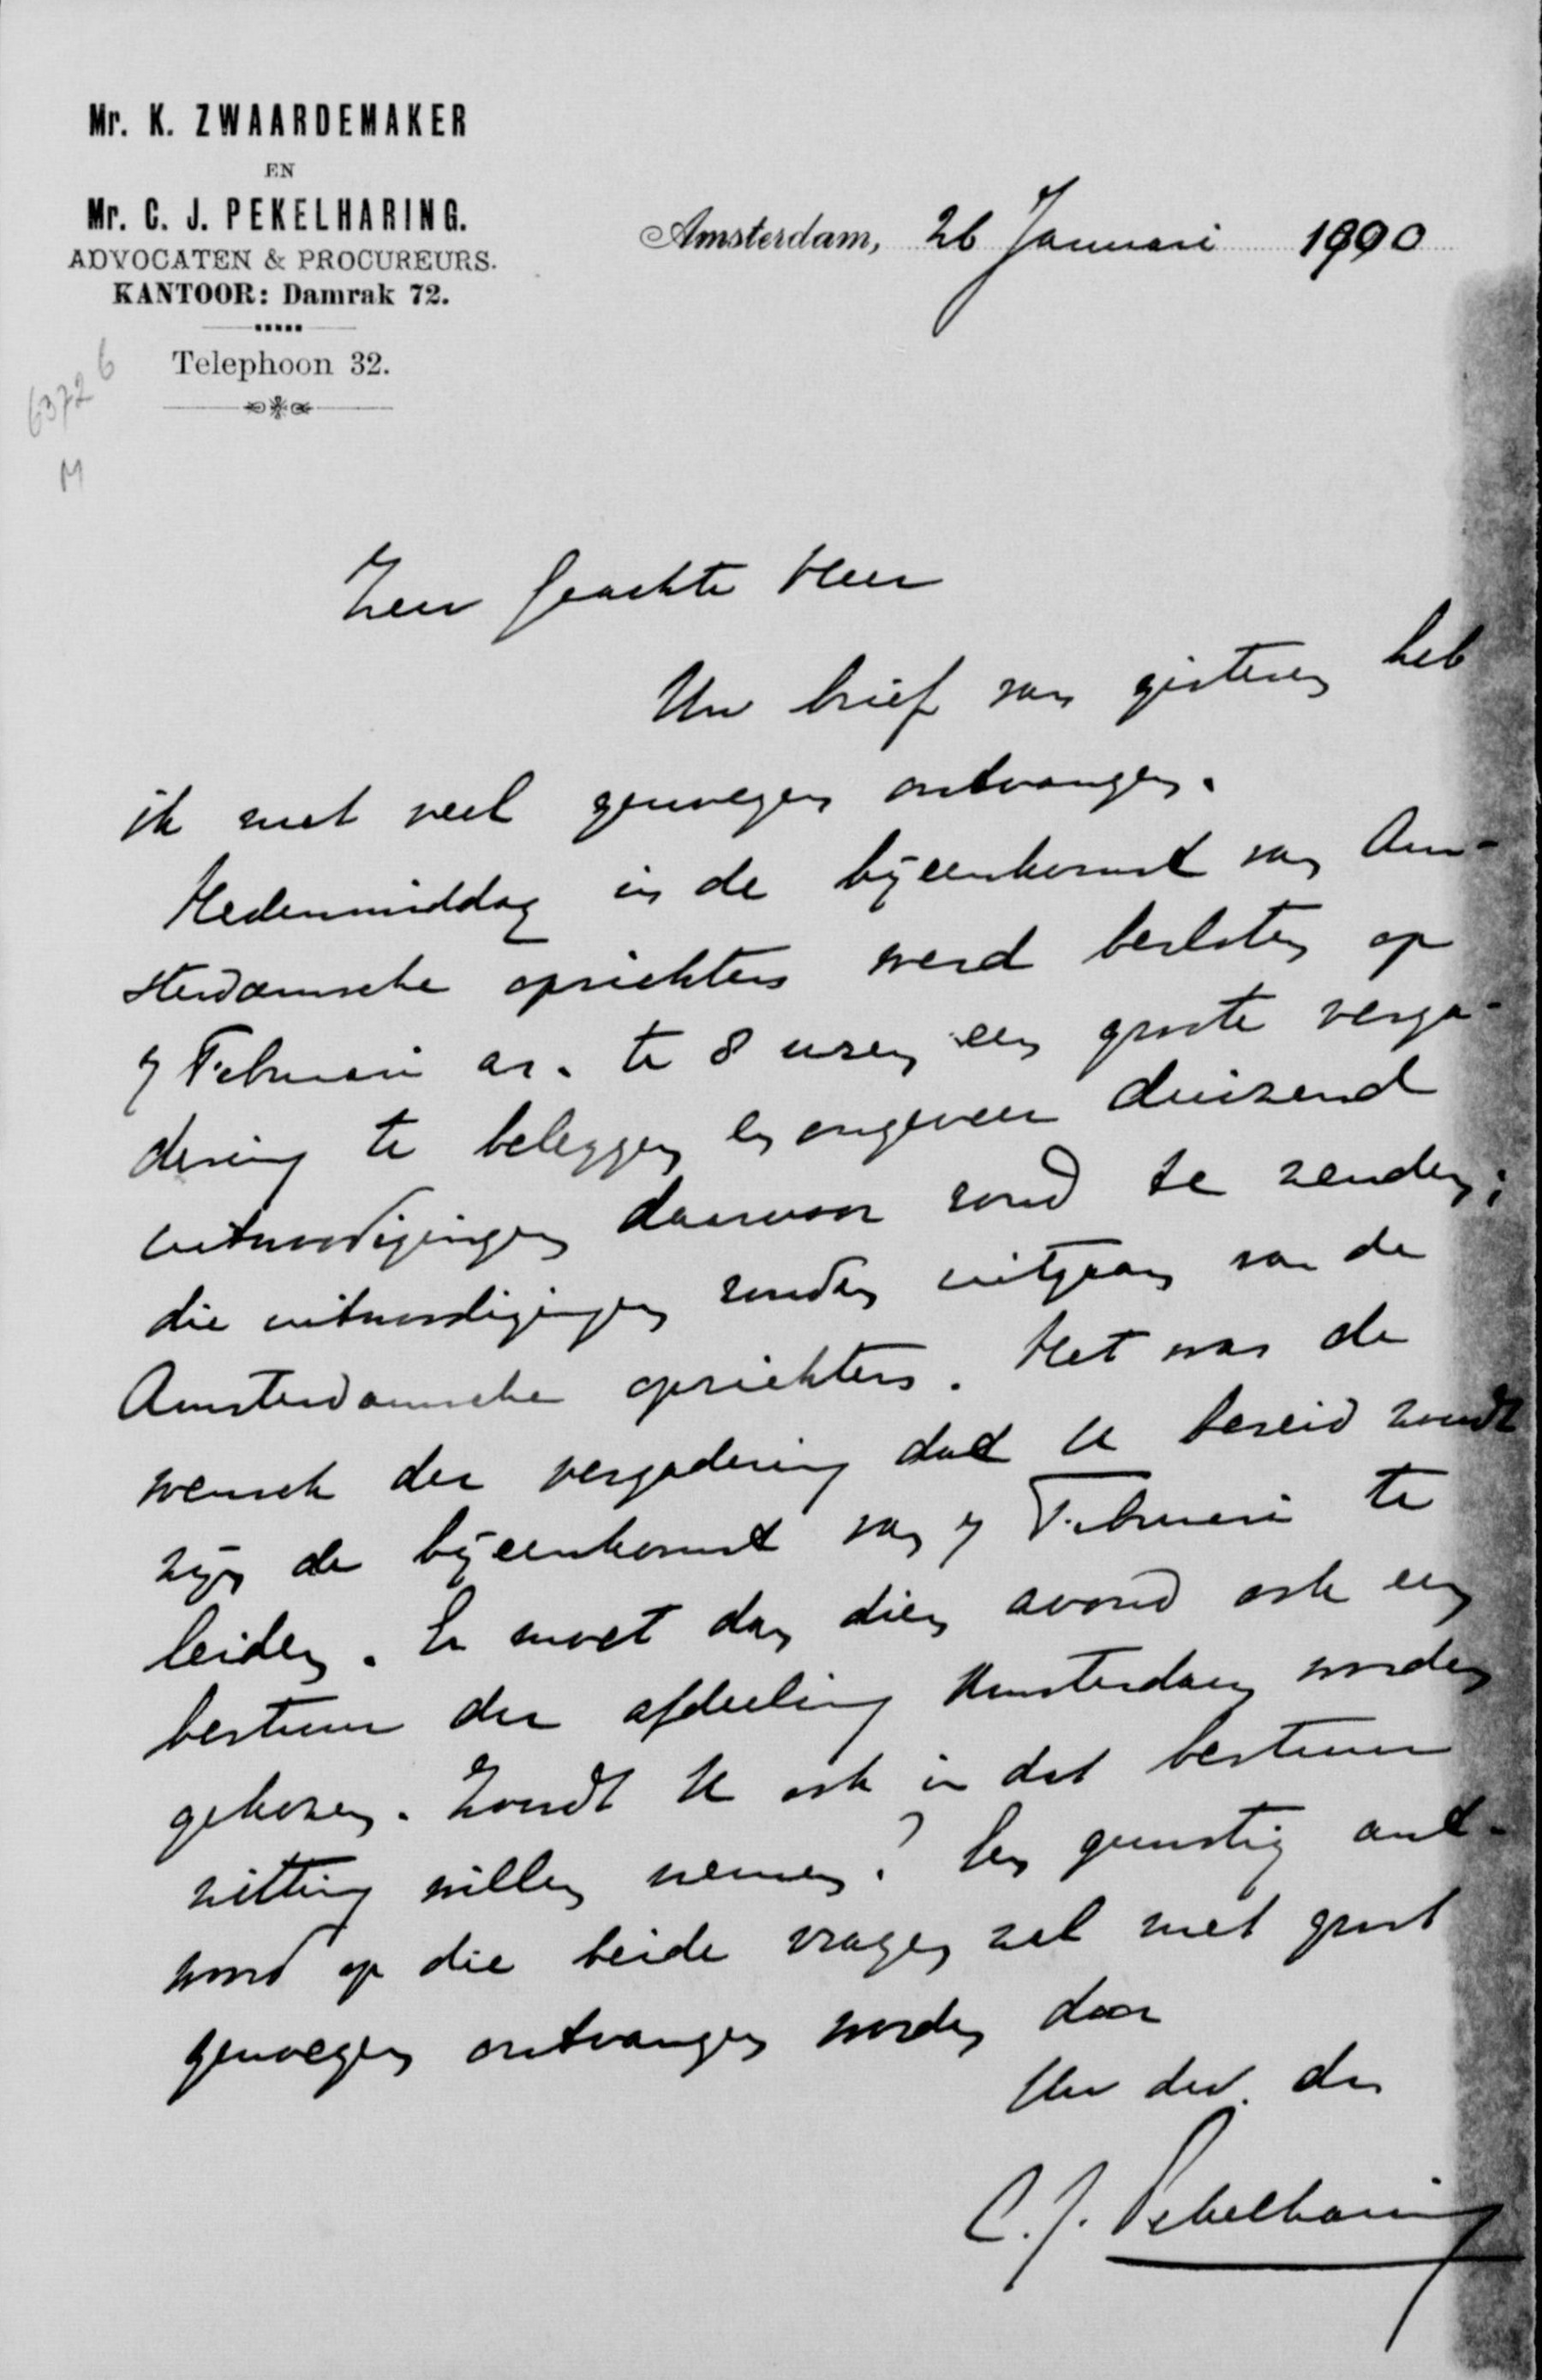 Mr. K. ZWAARDEMAKER
EN
Mr. C. J. PEKELHARING.
ADVOCATEN & PROCUREURS.
KANTOOR: Damrak 72.
Telephoon 32.
6372 6
M
Amsterdam, 26 Januari 1900
Zeer Geachte Heer
Uw brief van gisteren heb
ik met veel genoegen ontvangen.
Hedenmiddag in de bijeenkomst van Am-
sterdamsche oprichters werd besloten op
7 Februari as. te 8 uren een groote verga-
dering te beleggen en ongeveer duizend
uitnoodigingen daarvoor rond te zenden;
die uitnoodigingen zouden uitgaan van de
Amsterdamsche oprichters. Het was de
wensch der vergadering dat U bereid zoudt
zijn de bijeenkomst van 7 Februari te
leiden. Er moet dan dien avond ook een
bestuur der afdeeling Amsterdam worden
gekozen. Zoudt U ook in dat bestuur
zitting willen nemen? Een gunstig ant-
woord op die beide vragen zal met groot
genoegen ontvangen worden door
Uw dw. dr
C. J. Pekelharing